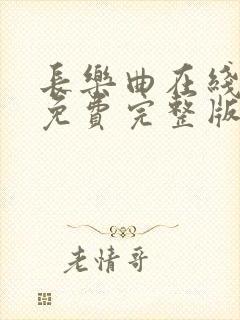 長樂曲在綫
免費完整版
老情哥